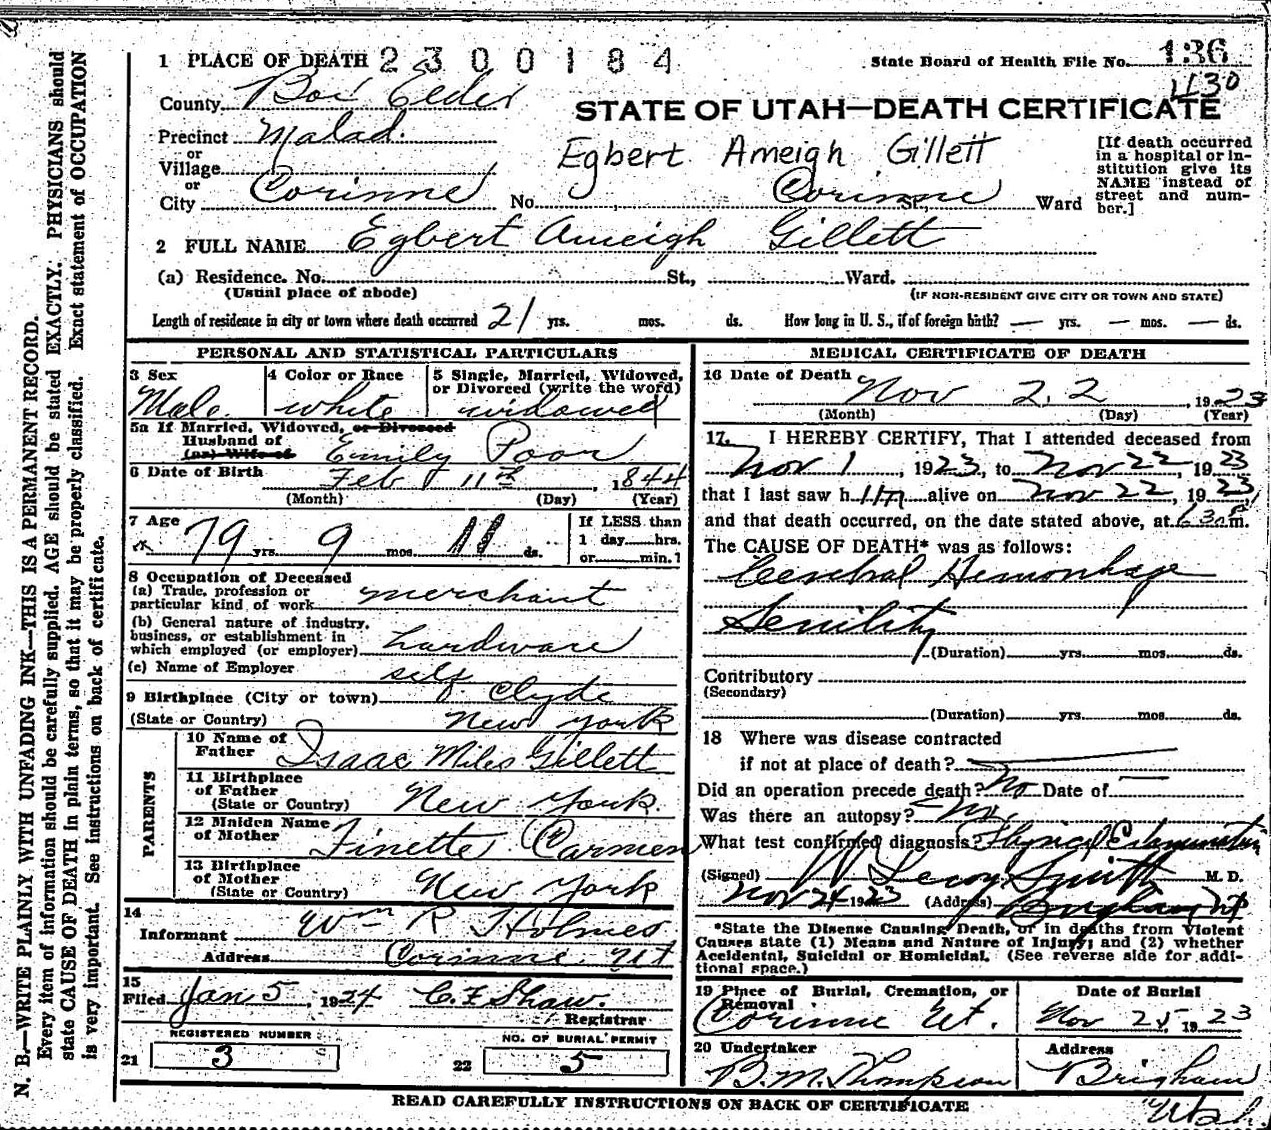 1 PLACE OF DEATH 2300184 State Board of Health File No. 136
1130
County Box Elder
STATE OF UTAH—DEATH CERTIFICATE
Precinct Malad.
or
Village
or
City Corinne No. Corinne St. Ward
Egbert Ameigh Gillett
[If death occurred
in a hospital or in-
stitution give its
NAME instead of
street and num-
ber.]
2 FULL NAME Egbert Ameigh Gillett
(a) Residence. No. St., Ward.
(Usual place of abode) (IF NON-RESIDENT GIVE CITY OR TOWN AND STATE)
Length of residence in city or town where death occurred 21 yrs. mos. ds. How long in U. S., if of foreign birth? — yrs. — mos. — ds.
PERSONAL AND STATISTICAL PARTICULARS
3 Sex 4 Color or Race 5 Single, Married, Widowed,
or Divorced (write the word)
Male white widowed
5a If Married, Widowed, or Divorced
Husband of
(or) Wife of Emily Poor
6 Date of Birth Feb 11th, 1844
(Month) (Day) (Year)
7 Age 79 yrs. 9 mos. 11 ds.
If LESS than
1 day hrs.
or min.?
8 Occupation of Deceased
(a) Trade, profession or
particular kind of work merchant
(b) General nature of industry,
business, or establishment in
which employed (or employer) hardware
(c) Name of Employer self
9 Birthplace (City or town) Clyde
(State or Country) New York
PARENTS
10 Name of
Father Isaac Miles Gillett
11 Birthplace
of Father
(State or Country) New York.
12 Maiden Name
of Mother Finette Carmen
13 Birthplace
of Mother
(State or Country) New York
14
Informant Wm R Holmes
Address Corinne Ut
15
Filed Jan 5, 1924 C. F. Shaw.
Registrar
REGISTERED NUMBER NO. OF BURIAL PERMIT
21 3 22 5
MEDICAL CERTIFICATE OF DEATH
16 Date of Death Nov 22, 1923
(Month) (Day) (Year)
17. I HEREBY CERTIFY, That I attended deceased from
Nov 1, 1923, to Nov 22, 1923
that I last saw him alive on Nov 22, 1923,
and that death occurred, on the date stated above, at 630 m.
The CAUSE OF DEATH* was as follows:
Cerebral Hemorrhage
Senility
(Duration) yrs. mos. ds.
Contributory
(Secondary)
(Duration) yrs. mos. ds.
18 Where was disease contracted
if not at place of death?
Did an operation precede death? No Date of —
Was there an autopsy? No
What test confirmed diagnosis? Physical Examination
(Signed) W Leroy Smith M. D.
Nov 24 1923 (Address) Brigham Ut
*State the Disease Causing Death, or in deaths from Violent
Causes state (1) Means and Nature of Injury; and (2) whether
Accidental, Suicidal or Homicidal. (See reverse side for addi-
tional space.)
19 Place of Burial, Cremation, or
Removal Date of Burial
Corinne Ut. Nov 25, 1923
20 Undertaker Address
B. M. Thompson Brigham
Utah.
READ CAREFULLY INSTRUCTIONS ON BACK OF CERTIFICATE
N. B.—WRITE PLAINLY WITH UNFADING INK—THIS IS A PERMANENT RECORD.
Every item of information should be carefully supplied. AGE should be stated EXACTLY. PHYSICIANS should
state CAUSE OF DEATH in plain terms, so that it may be properly classified. Exact statement of OCCUPATION
is very important. See instructions on back of certificate.